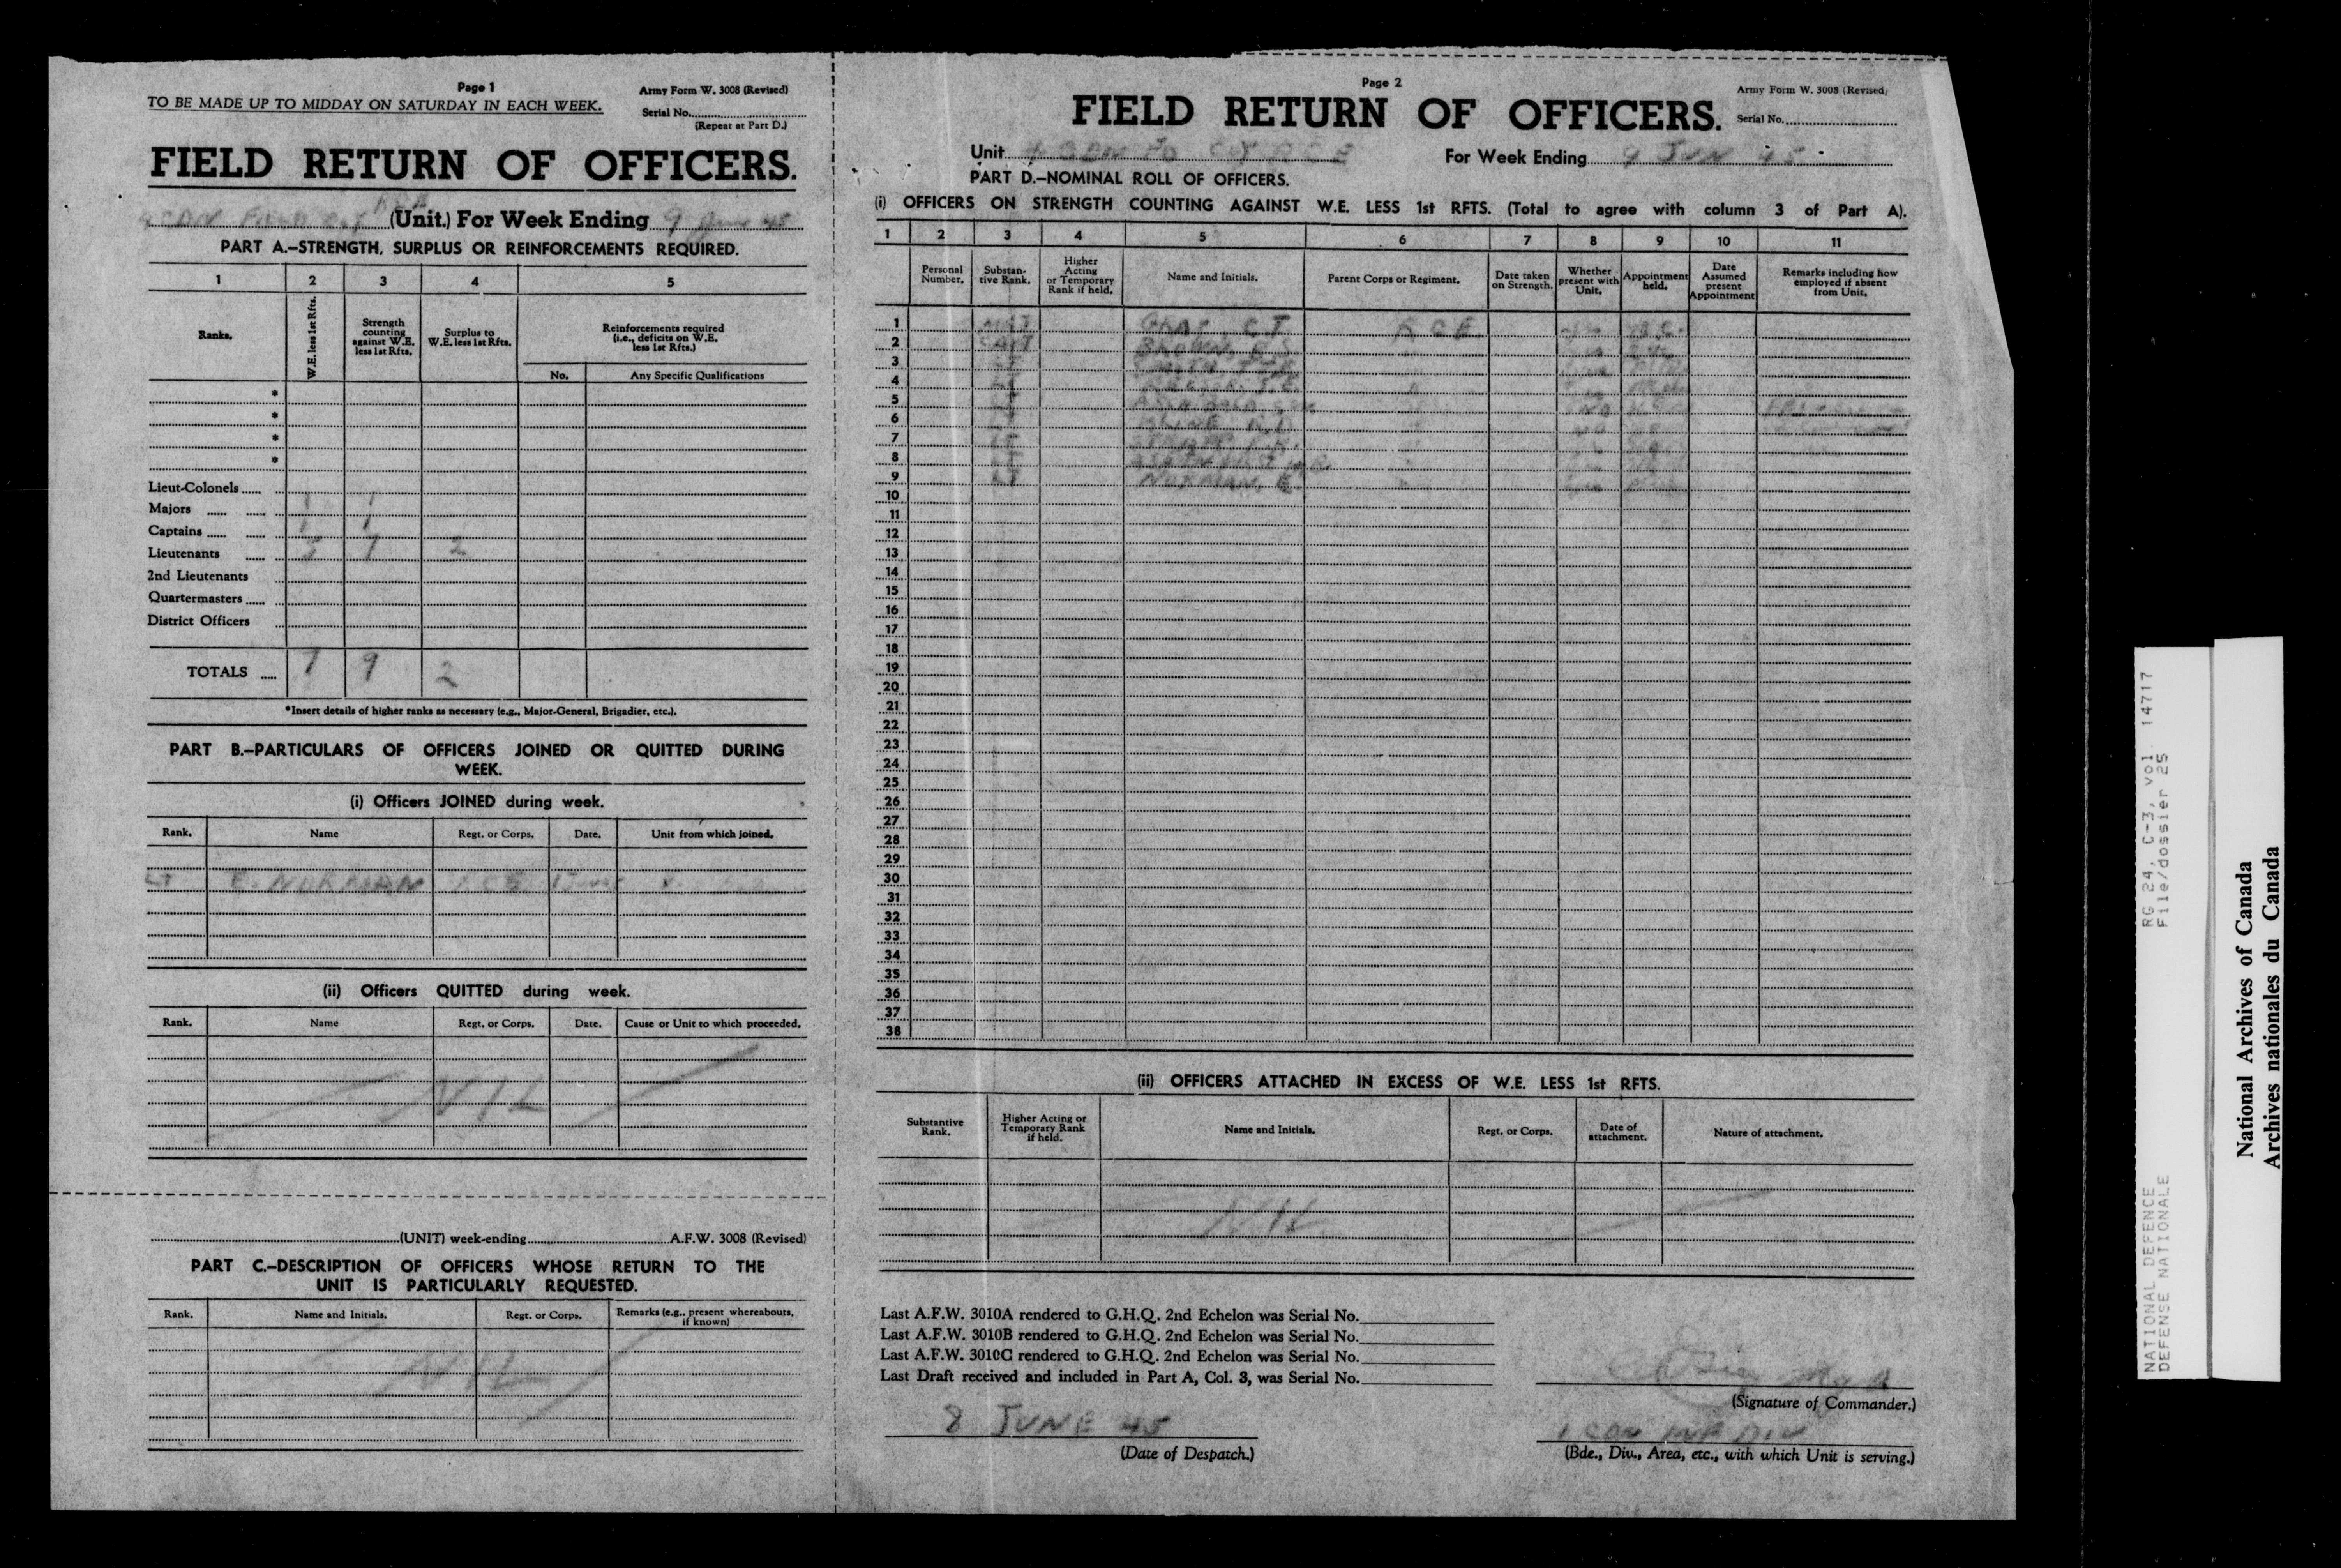 Page 1
TO BE MADE UP TO MIDDAY ON SATURDAY IN EACH WEEK.
Army Form W. 3008 (Revised)
Serial No.
(Repeat at Part D.)
FIELD RETURN OF OFFICERS.
(Unit.) For Week Ending 9 June 45
PART A.—STRENGTH, SURPLUS OR REINFORCEMENTS REQUIRED.
1 2 3 4 5
Ranks. W.E. less 1st Rfts. Strength counting against W.E. less 1st Rfts. Surplus to W.E. less 1st Rfts. Reinforcements required (i.e., deficits on W.E. less 1st Rfts.)
No. Any Specific Qualifications
*
*
*
*
Lieut-Colonels
Majors 1 1
Captains 1 1
Lieutenants 5 7 2
2nd Lieutenants
Quartermasters
District Officers
TOTALS 7 9 2
*Insert details of higher ranks as necessary (e.g., Major-General, Brigadier, etc.).
PART B.—PARTICULARS OF OFFICERS JOINED OR QUITTED DURING
WEEK.
(i) Officers JOINED during week.
Rank. Name Regt. or Corps. Date. Unit from which joined.
LT E. NORMAN RCE
(ii) Officers QUITTED during week.
Rank. Name Regt. or Corps. Date. Cause or Unit to which proceeded.
NIL
(UNIT) week-ending A.F.W. 3008 (Revised)
PART C.—DESCRIPTION OF OFFICERS WHOSE RETURN TO THE
UNIT IS PARTICULARLY REQUESTED.
Rank. Name and Initials. Regt. or Corps. Remarks (e.g., present whereabouts, if known)
NIL
Page 2
Army Form W. 3008 (Revised)
FIELD RETURN OF OFFICERS.
Serial No.
Unit For Week Ending 9 JUN 45
PART D.—NOMINAL ROLL OF OFFICERS.
(i) OFFICERS ON STRENGTH COUNTING AGAINST W.E. LESS 1st RFTS. (Total to agree with column 3 of Part A).
1 2 3 4 5 6 7 8 9 10 11
Personal Number. Substantive Rank. Higher Acting or Temporary Rank if held. Name and Initials. Parent Corps or Regiment. Date taken on Strength. Whether present with Unit. Appointment held. Date Assumed present Appointment Remarks including how employed if absent from Unit.
1 MAJ GRAY CT RCE
2 CAPT BROWN
3 LT
4 LT
5
6 LT
7 LT
8 LT
9 LT NORMAN, E
10
11
12
13
14
15
16
17
18
19
20
21
22
23
24
25
26
27
28
29
30
31
32
33
34
35
36
37
38
(ii) OFFICERS ATTACHED IN EXCESS OF W.E. LESS 1st RFTS.
Substantive Rank. Higher Acting or Temporary Rank if held. Name and Initials. Regt. or Corps. Date of attachment. Nature of attachment.
NIL
Last A.F.W. 3010A rendered to G.H.Q. 2nd Echelon was Serial No.
Last A.F.W. 3010B rendered to G.H.Q. 2nd Echelon was Serial No.
Last A.F.W. 3010C rendered to G.H.Q. 2nd Echelon was Serial No.
Last Draft received and included in Part A, Col. 3, was Serial No.
(Signature of Commander.)
8 JUNE 45
(Date of Despatch.)
1 CDN INF DIV
(Bde., Div., Area, etc., with which Unit is serving.)
NATIONAL DEFENCE RG 24, C-3, vol. 14717
DEFENSE NATIONALE File/dossier 25
National Archives of Canada
Archives nationales du Canada